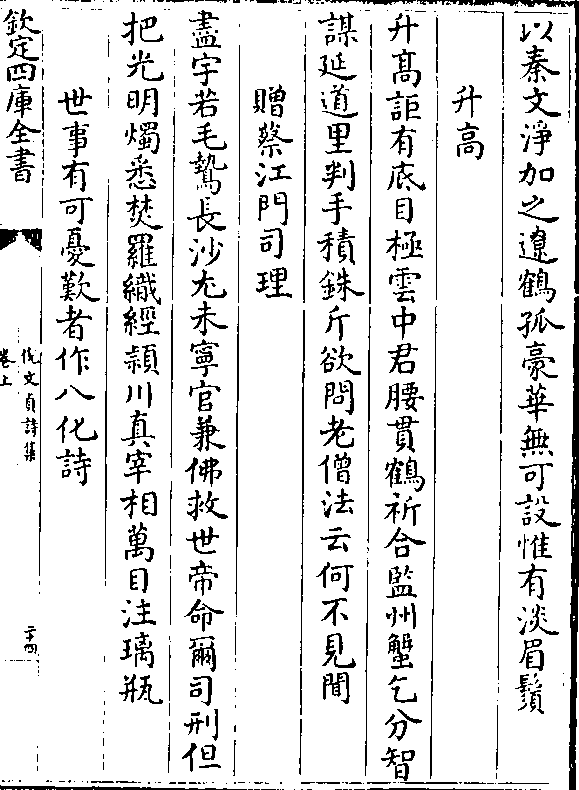 以秦文淨加之遼鶴孤豪華無可設惟有淡眉鬚
升高
升高詎有底目極雲中君腰貫鶴祈合監州蟹乞分智
謀延道里判手積銖斤欲問老僧法云何不見聞
贈蔡江門司理
盡字若毛鷙長沙尤未寧官兼佛救世帝命爾司刑但
把光明燭悉焚羅織經潁川真宰相萬目注璃瓶
世事有可憂歎者作八化詩
欽定四庫全書
倪文貞詩集
卷上
二十四